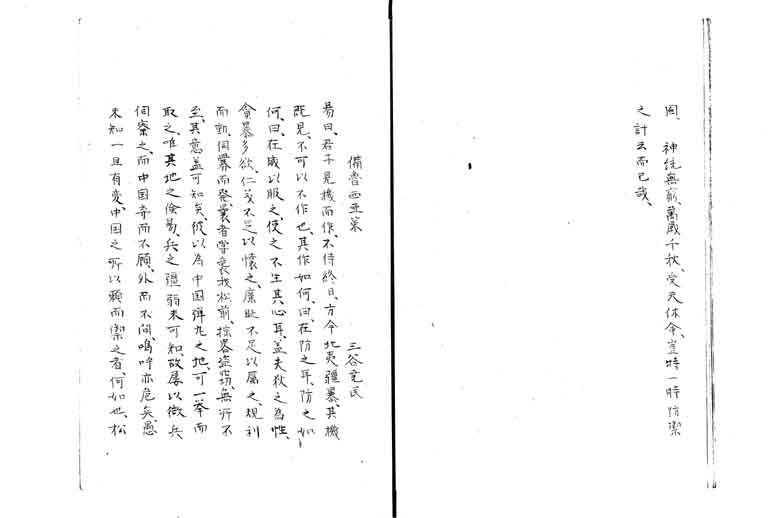 固、神統無窮、萬歳千秋、受天休命、豈特一時防禦
之計云而已哉、
備魯西亜策
三谷 民
易曰、君子見機而作、不待終日、方今北夷彊暴、其機
既見、不可以不作也、其作如何、曰、在防之耳、防之如
何、曰、在威以服之、使之不生其心耳、蓋夫狄之為性、
貪暴多欲、仁義不足以懐之、廉耻不足以厲之、規利
而動、伺釁而発、曩者嘗襲我松前、掠畧盗竊、無所不
至、其意蓋可知矣、彼以為中国弾丸之地、可一挙而
取之、唯其地之倹易、兵之彊弱未可知、故屡以微兵
伺察之、而中国 而不顧、外而不問、嗚呼亦危矣、愚
未知一旦有変、中国之所以 而禦之者、何如也、松